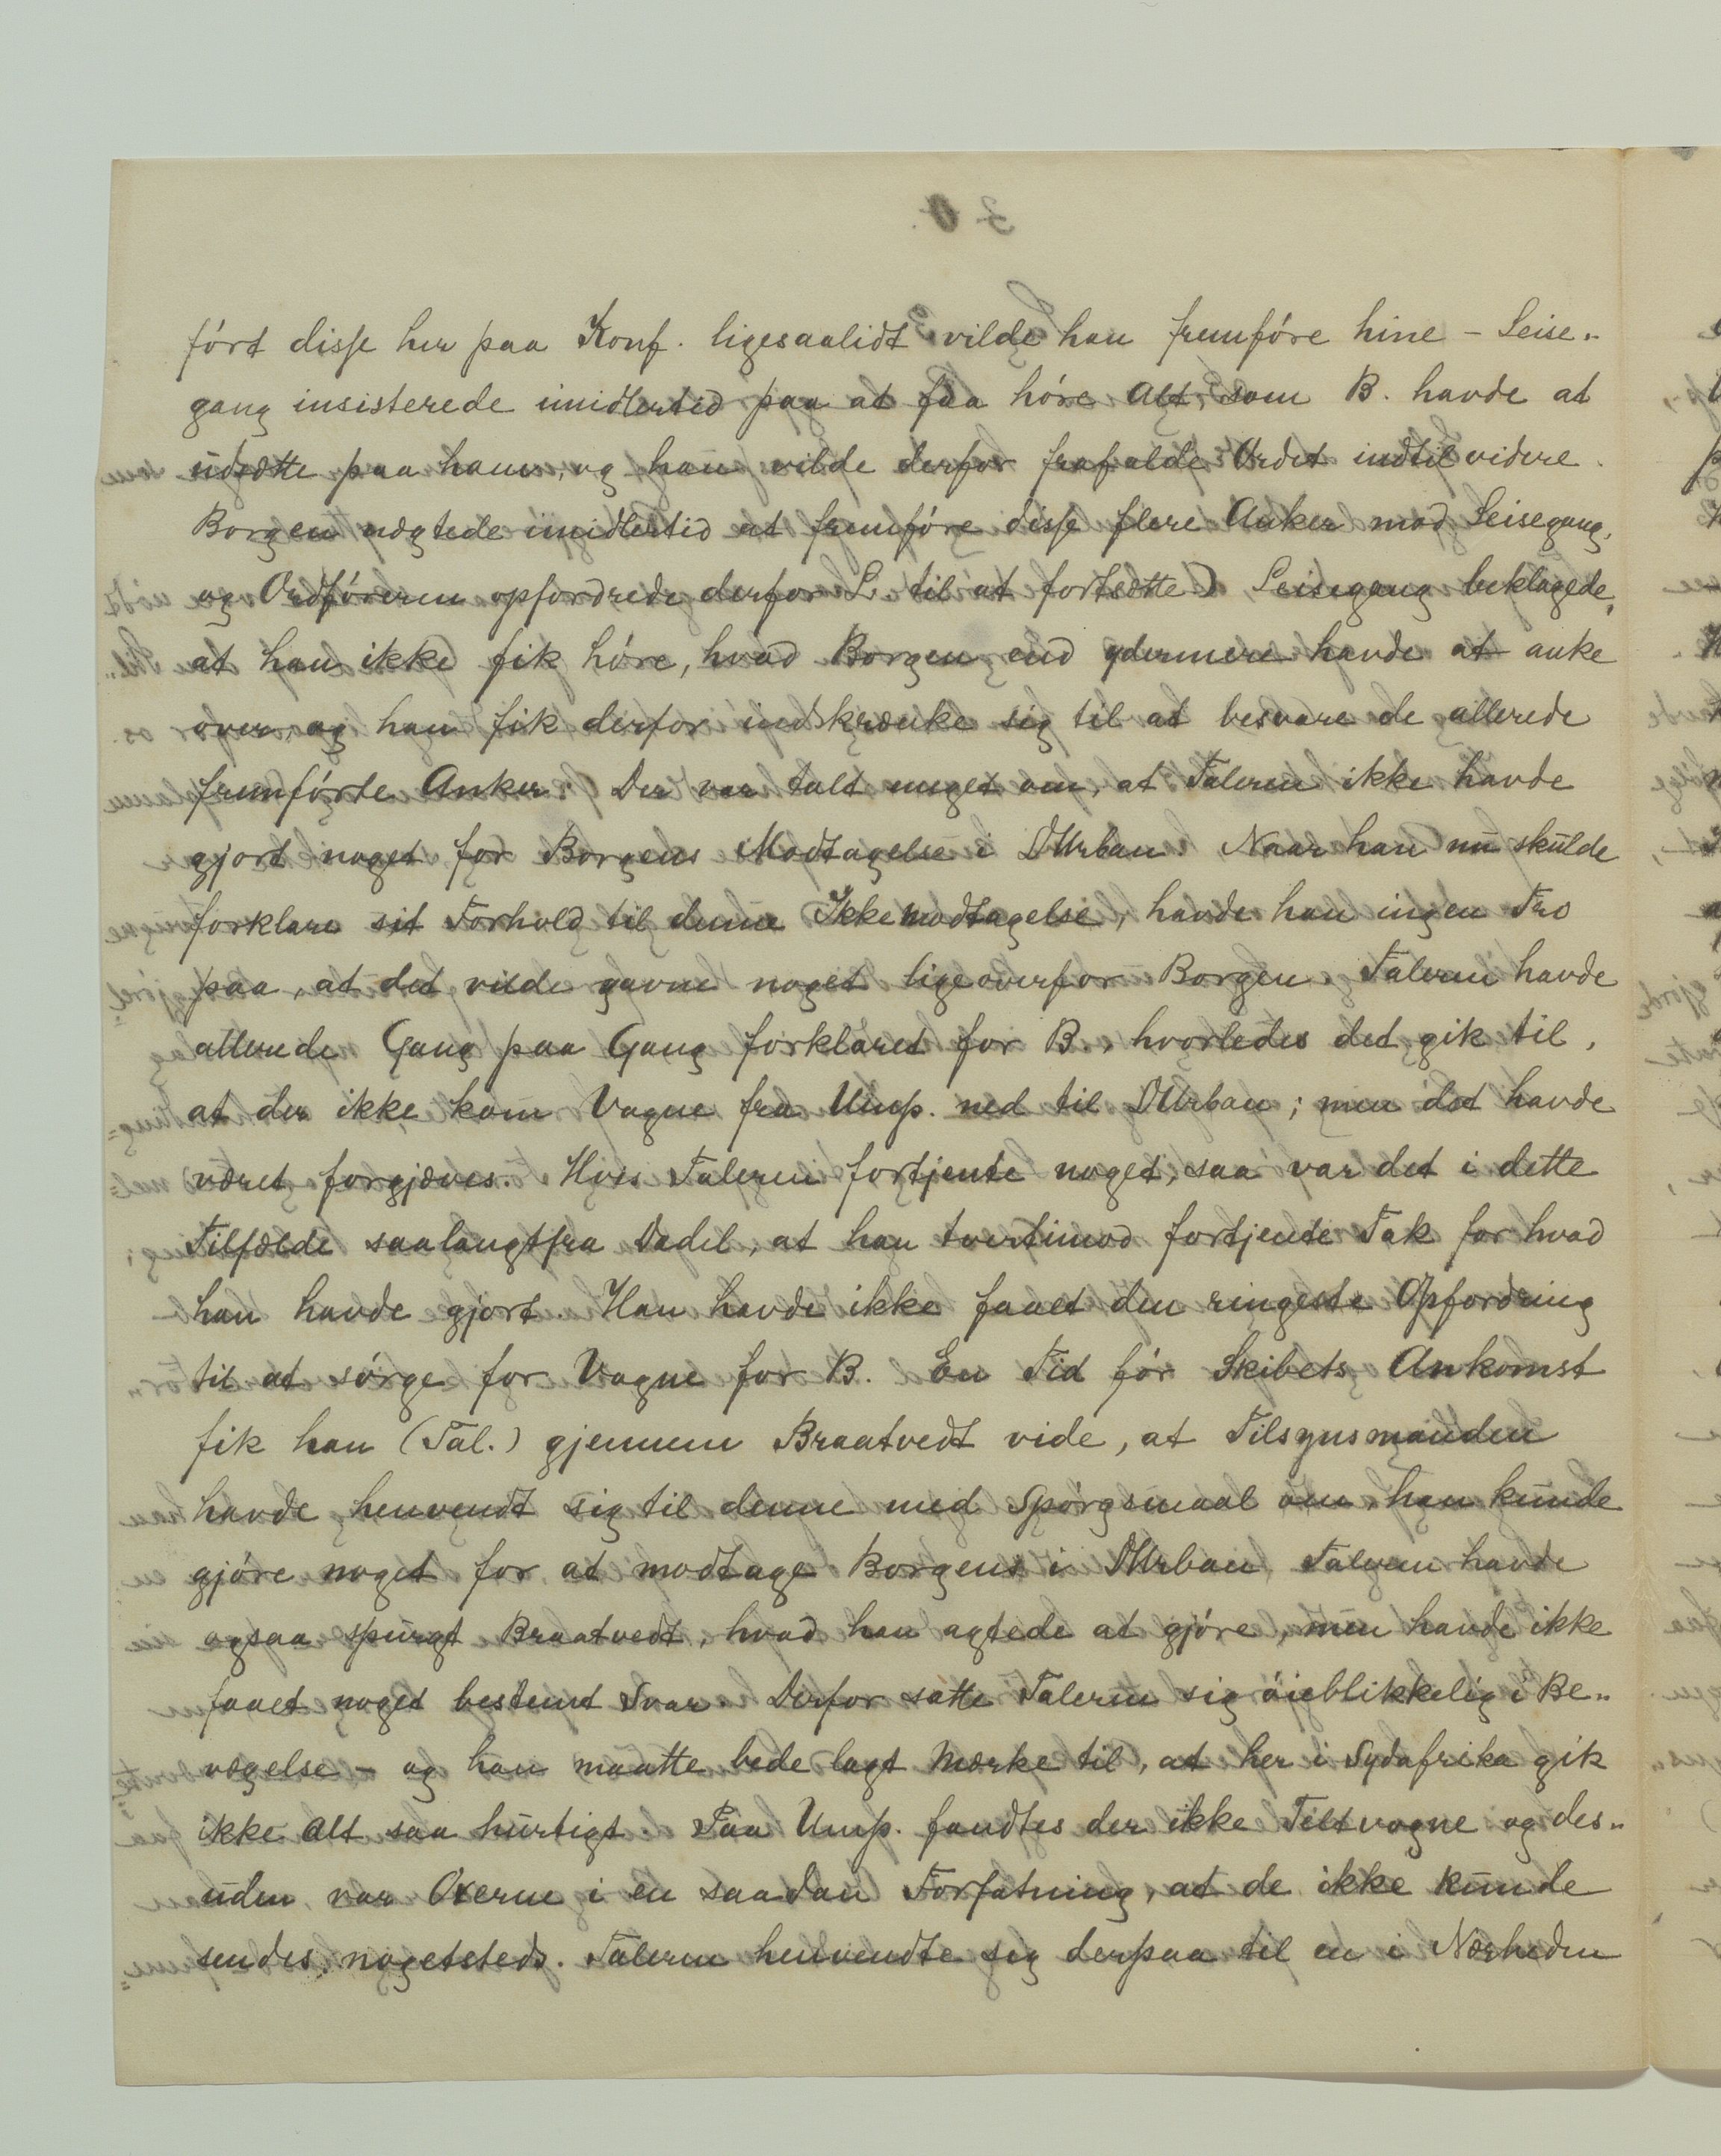 ført disse her paa Konf. ligesaalidt vilde han fremføre hine – Leise-
gang insisterede imidlertid paa at faa høre Alt, som B. havde at
udsætte paa ham, og han vilde derfor frafalde Ordet indtil videre.
Borgen nægtede imidlertid at fremføre disse flere Anker mod Leisegang,
og Ordføreren opfordrede derfor L. til at fortsætte) Leisegang beklagede,
at han ikke fik høre, hvad Borgen end ydermere havde at anke
over, og han fik derfor indskrænke sig til at besvare de allerede
fremførte Anker. Der var talt meget om, at Taleren ikke havde
gjort noget for Borgens Modtagelse i DUrban. Naar han nu skulde
forklare sit Forhold til denne Ikkemodtagelse, havde han ingen Tro
paa, at det vilde gavne noget ligeoverfor Borgen. Taleren havde
allerede Gang paa Gang forklaret for B., hvorledes det gik til,
at der ikke kom Vogne fra Ump. ned til DUrban; men det havde
været forgjæves. Hvis Taleren fortjente noget, saa var det i dette
Tilfælde saalangtfra Dadel, at han tvertimod fortjente Tak for hvad
han havde gjort. Han havde ikke faaet den ringeste Opfordring
til at sørge for Vogne for B. En Tid før Skibets Ankomst
fik han (Tal.) gjennem Braatvedt vide, at Tilsynsmanden
havde henvendt sig til denne med Spørgsmaal om, han kunde
gjøre noget for at modtage Borgens i DUrban. Taleren havde
ogsaa spurgt Braatvedt, hvad han agtede at gjøre, men havde ikke
faaet noget bestemt Svar. Derfor satte Taleren sig øieblikkelig i Be-
vægelse – og han maatte bede lagt Mærke til, at her i Sydafrika gik
ikke Alt saa hurtigt. Paa Ump. fandtes der ikke Teltvogne og des-
uden var Oxerne i en saadan Forfatning, at de ikke kunde
sendes nogetsteds. Taleren henvendte sig derpaa til en i Nærheden